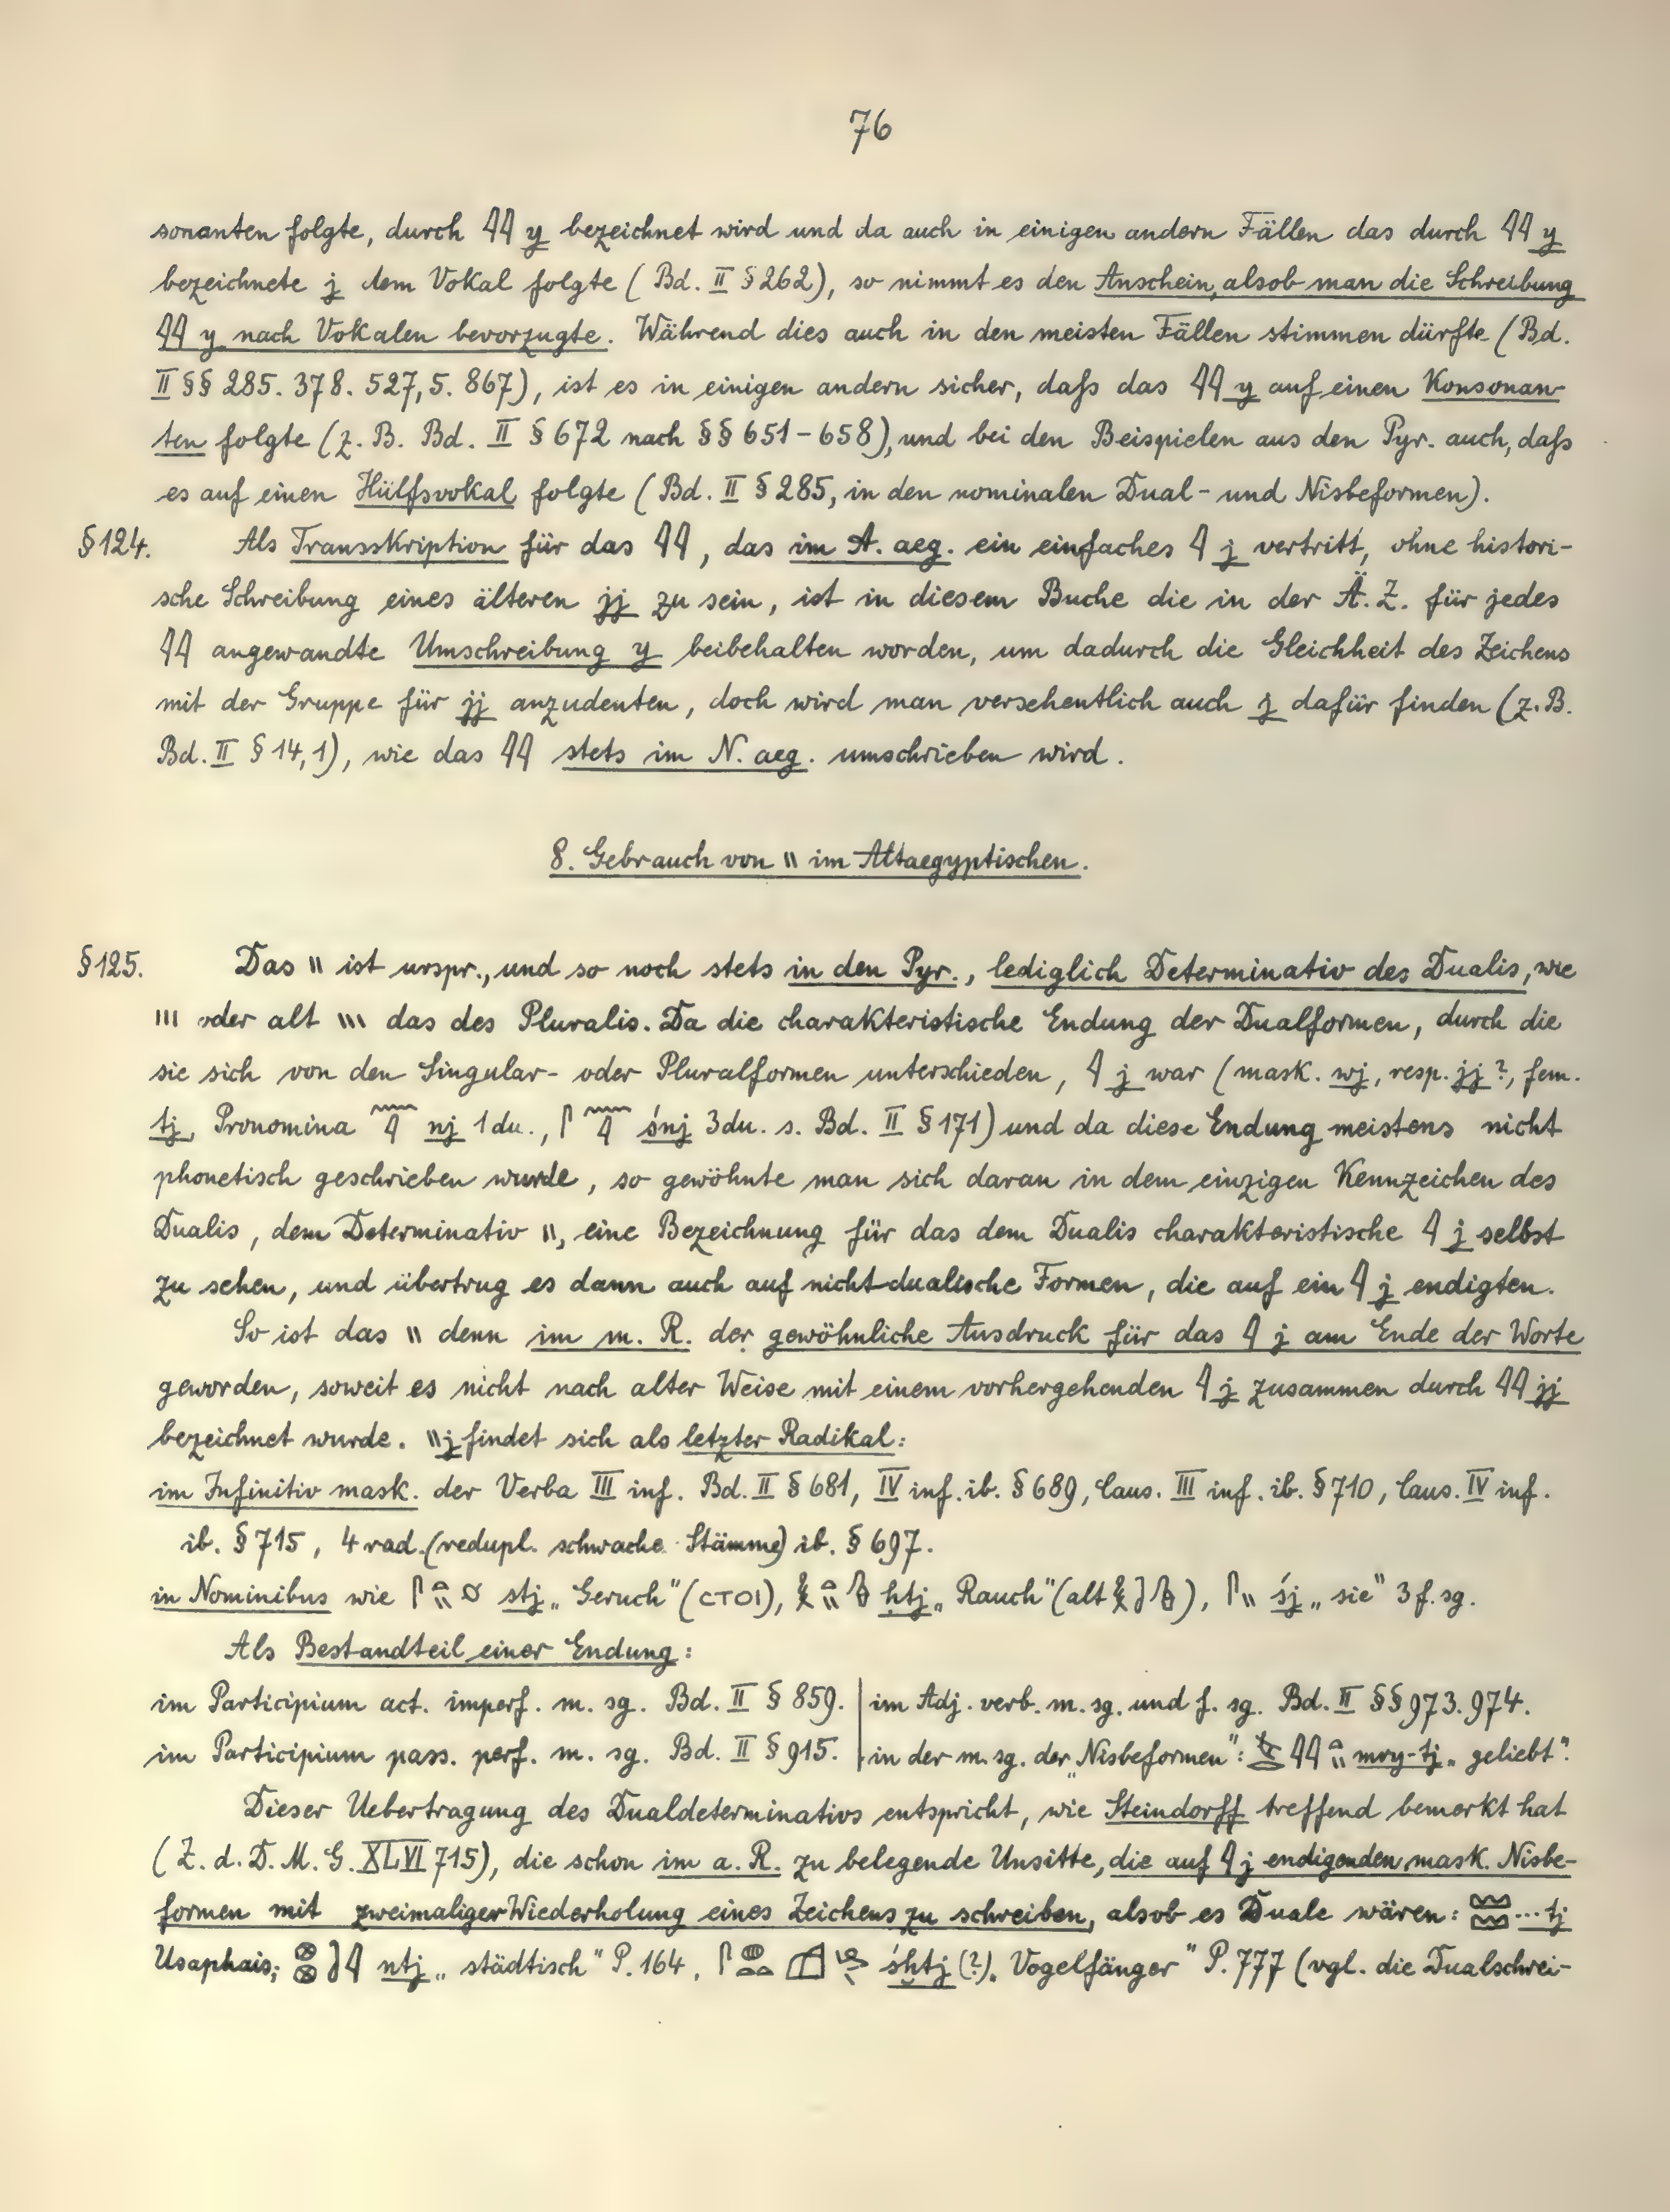 76
sonanten folgte, durch 𓇋𓇋 y bezeichnet wird und da auch in einigen andern Fällen das durch 𓇋𓇋 y
bezeichnete j dem Vokal folgte (Bd. II § 262), so nimmt es den Anschein, alsob man die Schreibung
𓇋𓇋 y nach Vokalen bevorzugte. Während dies auch in den meisten Fällen stimmen dürfte (Bd.
II §§ 285. 378. 527,5. 867), ist es in einigen andern sicher, daſs das 𓇋𓇋 y auf einen Konsonan-
ten folgte (z. B. Bd. II § 672 nach §§ 651-658), und bei den Beispielen aus den Pyr. auch, daſs
es auf einen Hülfsvokal folgte (Bd. II § 285, in den nominalen Dual- und Nisbeformen).
§ 124. Als Transskription für das 𓇋𓇋, das im A. aeg. ein einfaches 𓇋 j vertritt, ohne histori-
sche Schreibung eines älteren jj zu sein, ist in diesem Buche die in der Ä. Z. für jedes
𓇋𓇋 angewandte Umschreibung y beibehalten worden, um dadurch die Gleichheit des Zeichens
mit der Gruppe für jj anzudeuten, doch wird man versehentlich auch j dafür finden (z. B.
Bd. II § 14,1), wie das 𓇋𓇋 stets im N. aeg. umschrieben wird.
8. Gebrauch von \\ im Altaegyptischen.
§ 125. Das \\ ist urspr., und so noch stets in den Pyr., lediglich Determinativ des Dualis, wie
||| oder alt \\\ das des Pluralis. Da die charakteristische Endung der Dualformen, durch die
sie sich von den Singular- oder Pluralformen unterschieden, 𓇋 j war (mask. wj, resp. jj ?, fem.
tj, Pronomina 𓈖𓇋 nj 1 du., 𓋴𓈖𓇋 śnj 3 du. s. Bd. II § 171) und da diese Endung meistens nicht
phonetisch geschrieben wurde, so gewöhnte man sich daran in dem einzigen Kennzeichen des
Dualis, dem Determinativ \\, eine Bezeichnung für das dem Dualis charakteristische 𓇋 j selbst
zu sehen, und übertrug es dann auch auf nicht-dualische Formen, die auf ein 𓇋 j endigten.
So ist das \\ denn im m. R. der gewöhnliche Ausdruck für das 𓇋 j am Ende der Worte
geworden, soweit es nicht nach alter Weise mit einem vorhergehenden 𓇋 j zusammen durch 𓇋𓇋 jj
bezeichnet wurde. \\ j findet sich als letzter Radikal:
im Infinitiv mask. der Verba III inf. Bd. II § 681, IV inf. ib. § 689, Caus. III inf. ib. § 710, Caus. IV inf.
ib. § 715, 4 rad. (redupl. schwache Stämme) ib. § 697.
in Nominibus wie 𓋴𓏏\\ stj „Geruch" (ⲥⲧⲟⲓ), ḥtj „Rauch" (alt ), 𓋴\\ śj „sie" 3 f. sg.
Als Bestandteil einer Endung:
im Participium act. imperf. m. sg. Bd. II § 859. | im Adj. verb. m. sg. und f. sg. Bd. II §§ 973. 974.
im Participium pass. perf. m. sg. Bd. II § 915. | in der m. sg. der „Nisbeformen": 𓇋𓇋𓏏\\ mry-tj „geliebt".
Dieser Uebertragung des Dualdeterminativs entspricht, wie Steindorff treffend bemerkt hat
(Z. d. D. M. G. XLVI 715), die schon im a. R. zu belegende Unsitte, die auf 𓇋 j endigenden mask. Nisbe-
formen mit zweimaliger Wiederholung eines Zeichens zu schreiben, alsob es Duale wären: 𓈉𓈉 ... tj
Usaphais; 𓊖𓊖𓇋 ntj „städtisch" P. 164, śḫtj (?) „Vogelfänger" P. 777 (vgl. die Dualschrei-